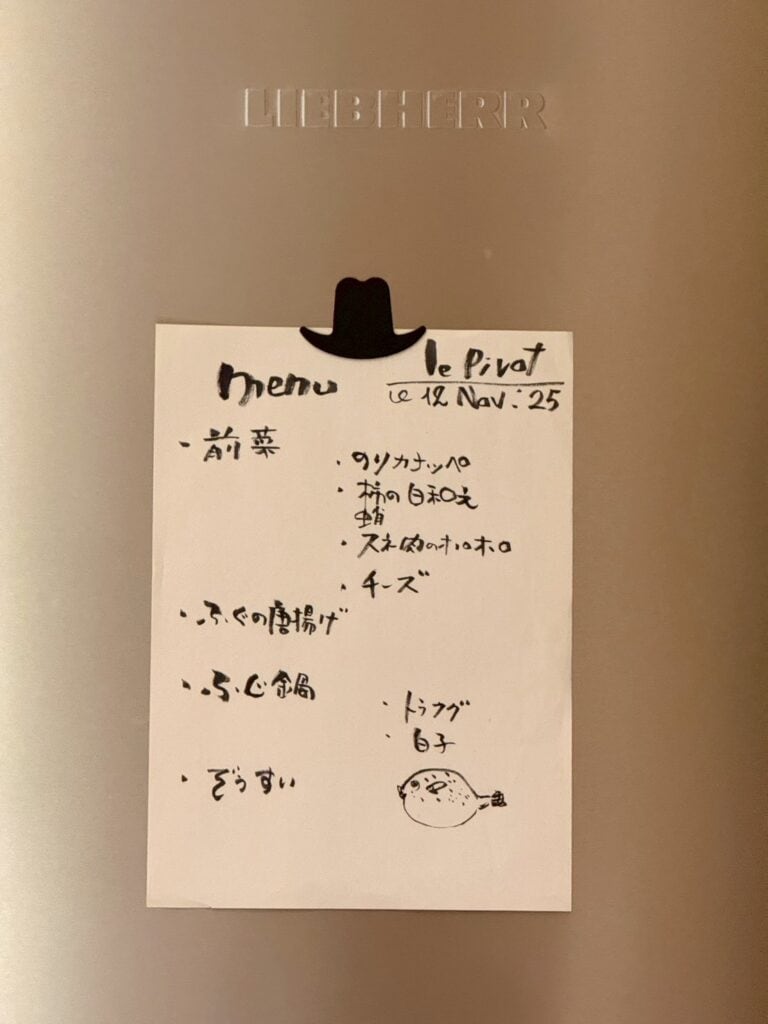 LIEBHERR
menu
le Pivot
le 12 Nov: 25
・前菜
・のりカナッペ
・柿の白和え
蛸
・スネ肉のホロホロ
・チーズ
・ふぐの唐揚げ
・ふぐ鍋
・トラフグ
・白子
・ぞうすい